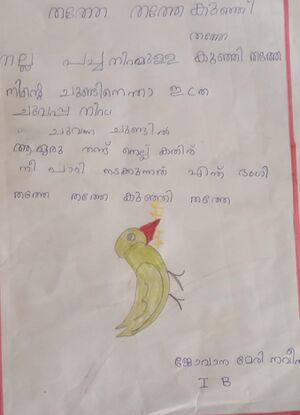 തത്തേ തത്തേ കുഞ്ഞി
തത്തേ
നല്ല പച്ച നിറമുള്ള കുഞ്ഞി തത്തേ
നിന്റെ ചുണ്ടിനെന്താ ഇത്ര
ചുവപ്പു നിറം
ചുവന്ന ചുണ്ടിൽ
ആരു തന്ന് നെല്ല് കതിര്
നീ പാറി നടക്കുന്നത് എന്ത് ഭംഗി
തത്തേ തത്തേ കുഞ്ഞി തത്തേ
ജോവാന മേരി നവീൻ
I B